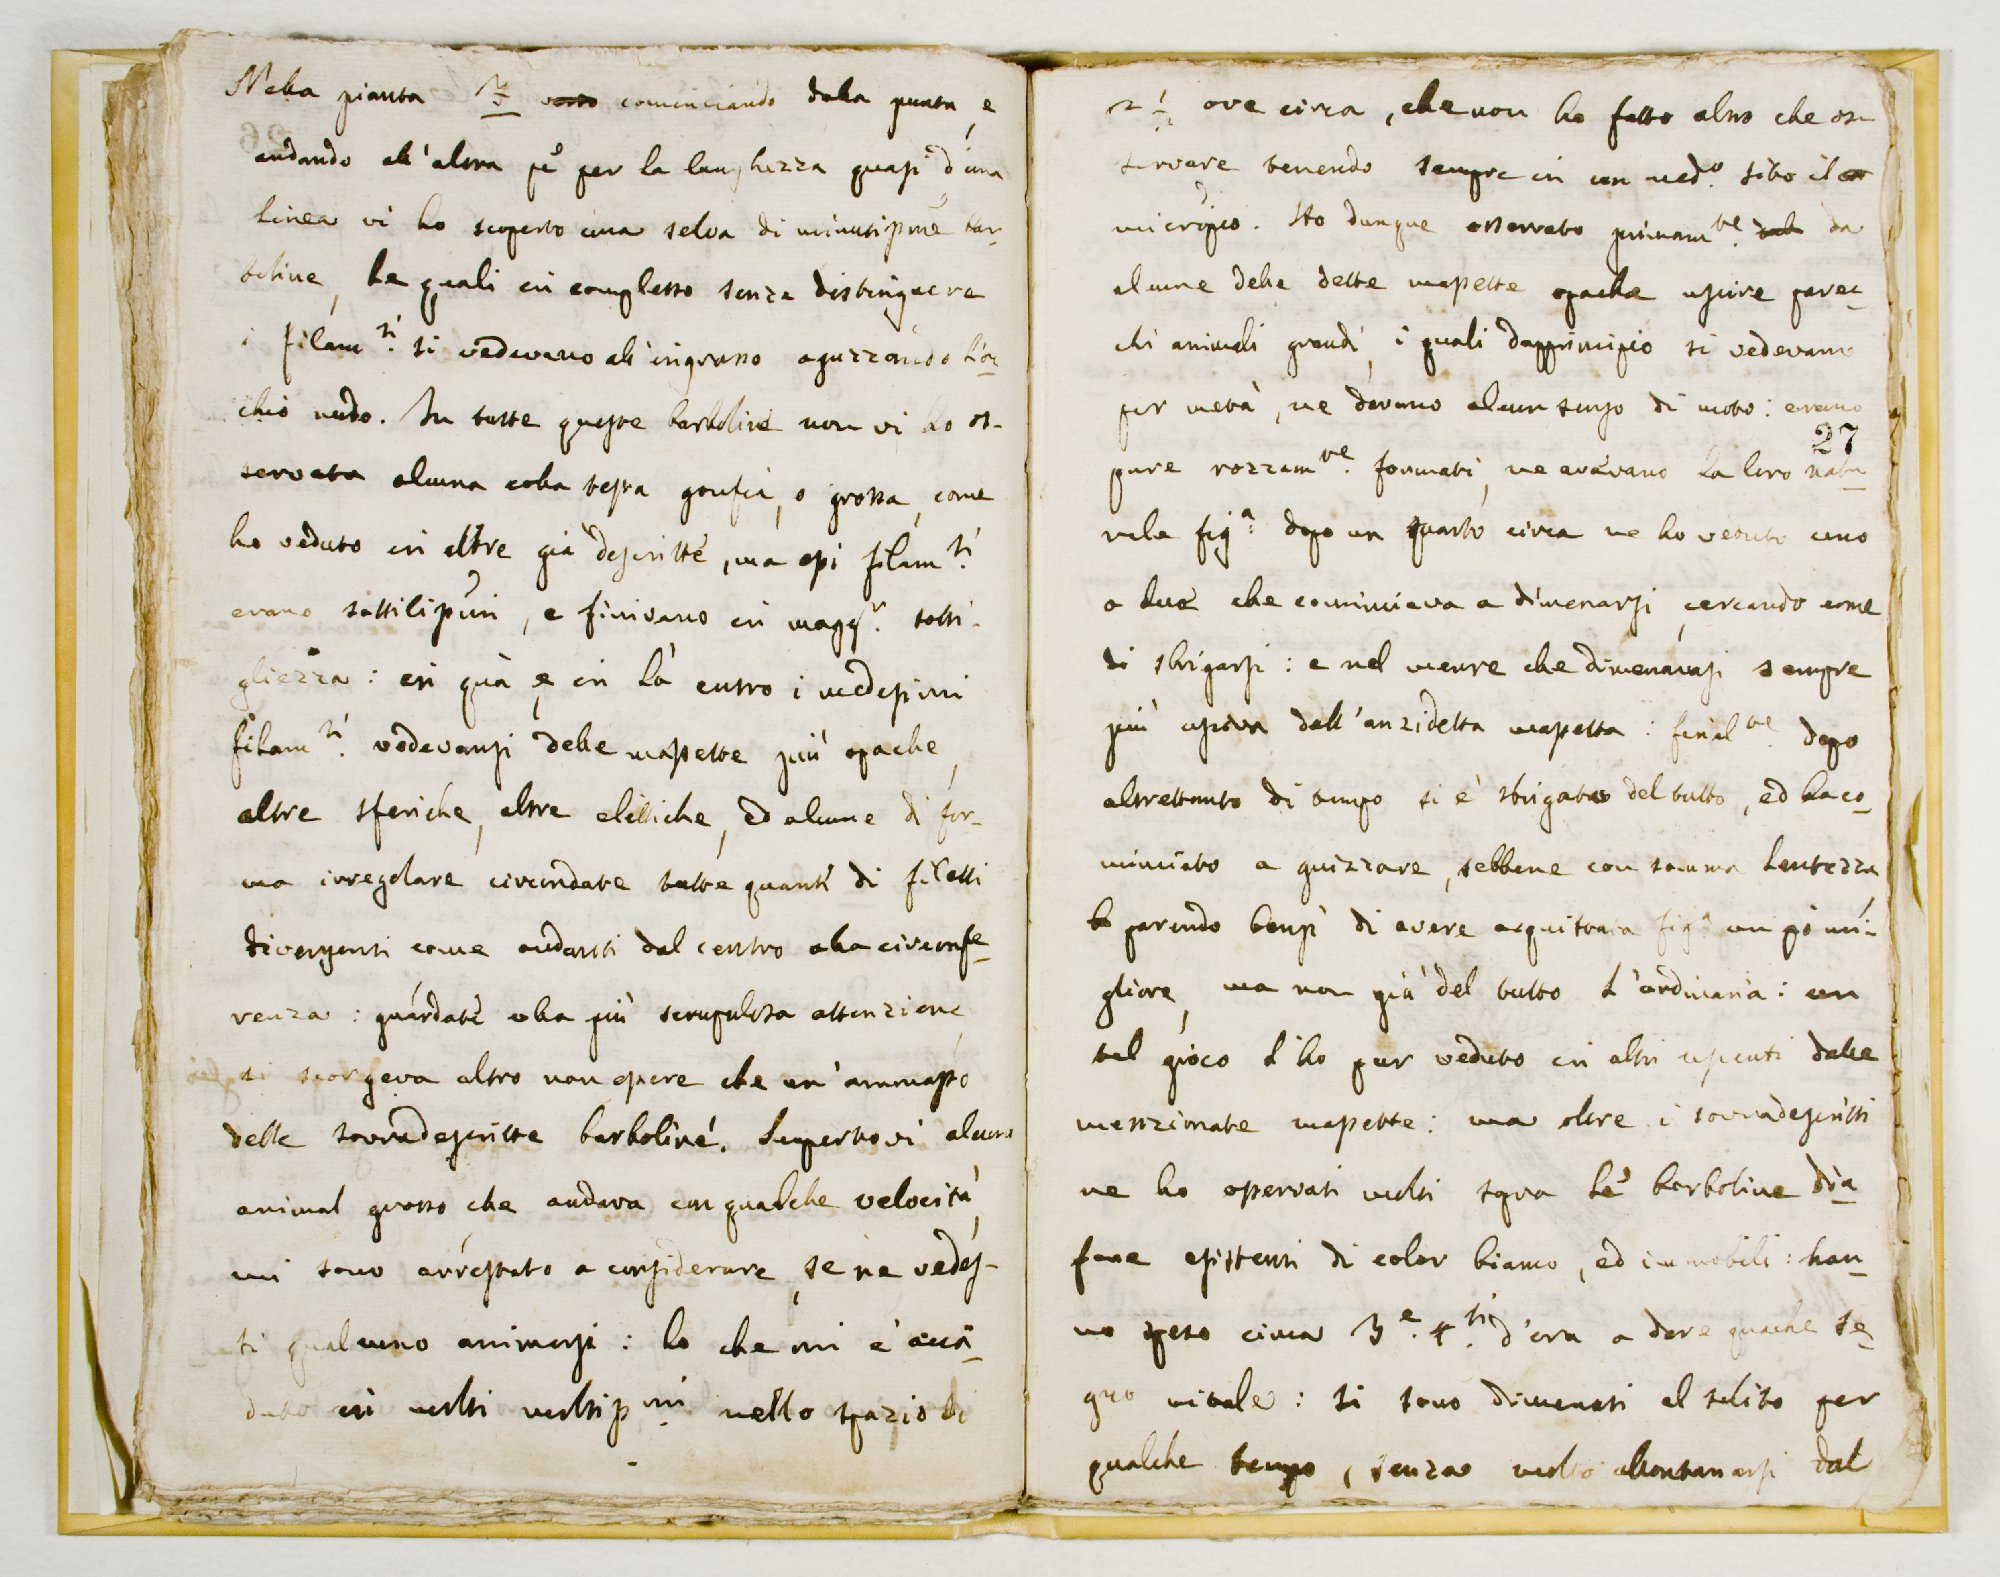 Nella pianta cominciando dalla punta, e
andando all'altra pᵒ per la lunghezza quasi d'una
linea vi ho scoperto una selva di minutissime bar-
boline, le quali in complesso senza distinguere
i filamᵗⁱ. si vedevano all'ingrosso aguzzando l'oc
chio nudo. In tutte queste barboline non vi ho os-
servata alcuna colla testa gonfia, o grossa, come
ho veduto in altre già descritte, ma essi filamᵗⁱ.
erano sottilissimi, e finivano in maggʳ. sotti-
gliezza: in quà e in là entro i medesimi
filamᵗⁱ. vedevansi delle massette più opache,
altre sferiche, altre elittiche, ed alcune di for-
ma irregolare circondate tutte quanti di filetti
divergenti come andanti dal centro alla circonfe
renza: guardate colla più scrupulosa attenzione
si scorgeva altro non essere che un'ammasso
delle sovradescritte barboline. Scopertovi alcun
animal grosso che andava con qualche velocità,
mi sono arrestato a considerare, se ne vedes-
si qualcuno animarsi: lo che mi è acca
duto in molti moltissᵐⁱ. nello spazio di
2 ½ ore circa, che non ho fatto altro che os-
servare tenendo sempre in un medᵒ. sito il
micropio. Ho dunque osservato primamᵗᵉ. da
alcune delle dette massette opache uscire parec
chi animali grandi, i quali dapprincipio si vedevano
per metà, ne davano alcun segno di moto: erano
27
pure rozzamᵗᵉ. formati, ne avevano la loro natu
rale figᵃ: dopo un quarto circa ne ho veduto uno
o due che cominciava a dimenarsi, cercando come
di sbrigarsi: e nel mentre che dimenavasi sempre
più usciva dall'anzidetta massetta: finalᵗᵉ. dopo
altrettanto di tempo si è sbrigato del tutto, ed ha co
minciato a guizzare, sebbene con somma lentezza
parendo bensì di avere acquistata figᵃ un pò mi-
gliore, ma non già del tutto l'ordinaria: un
tal gioco l'ho pur veduto in altri uscenti dalle
menzionate massette: ma oltre i sovradescritti
ne ho osservati molti sopra le barboline dia
fane esistenti di color bianco, ed immobili: han
no speso circa 3ᵉ. 4ᵗⁱ. d'ora a dare qualche se
gno vitale: si sono dimenati al solito per
qualche tempo, senza molto allontanarsi dal